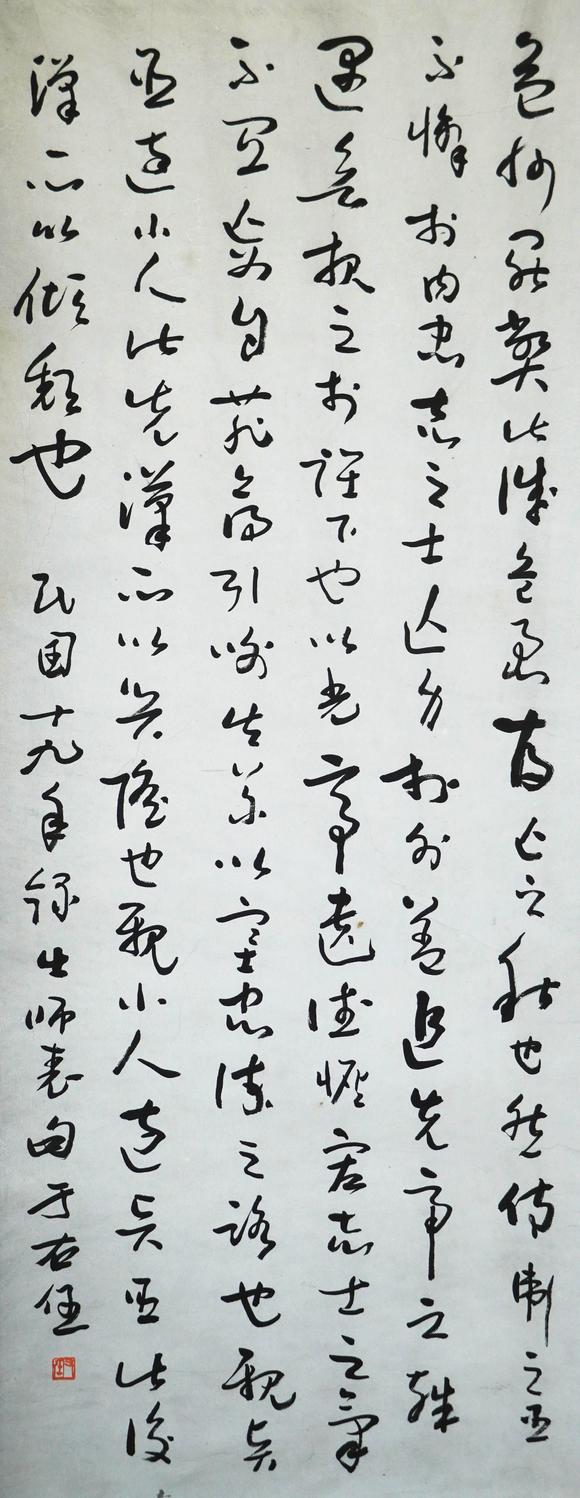 益州罷弊此誠危急存亡之秋也然侍衛之臣
不懈於內忠志之士亡身於外蓋追先帝之殊
遇欲報之於陛下也以光帝遺德恢宏志士之氣
不宜妄自菲薄引喻失義以塞忠諫之路也親賢
臣遠小人此先漢所以興隆也親小人遠賢臣此後
漢所以傾頹也 民國十九年錄出師表句于右任